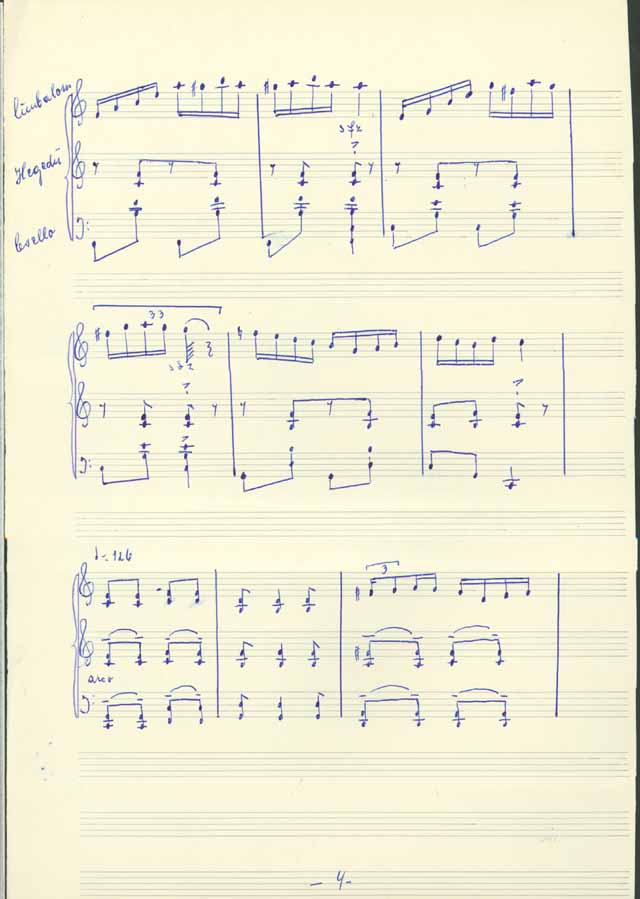 Cimbalom
sfz
Hegedű
Csello
33
sfz
♩= 126
3
arco
- 4 -